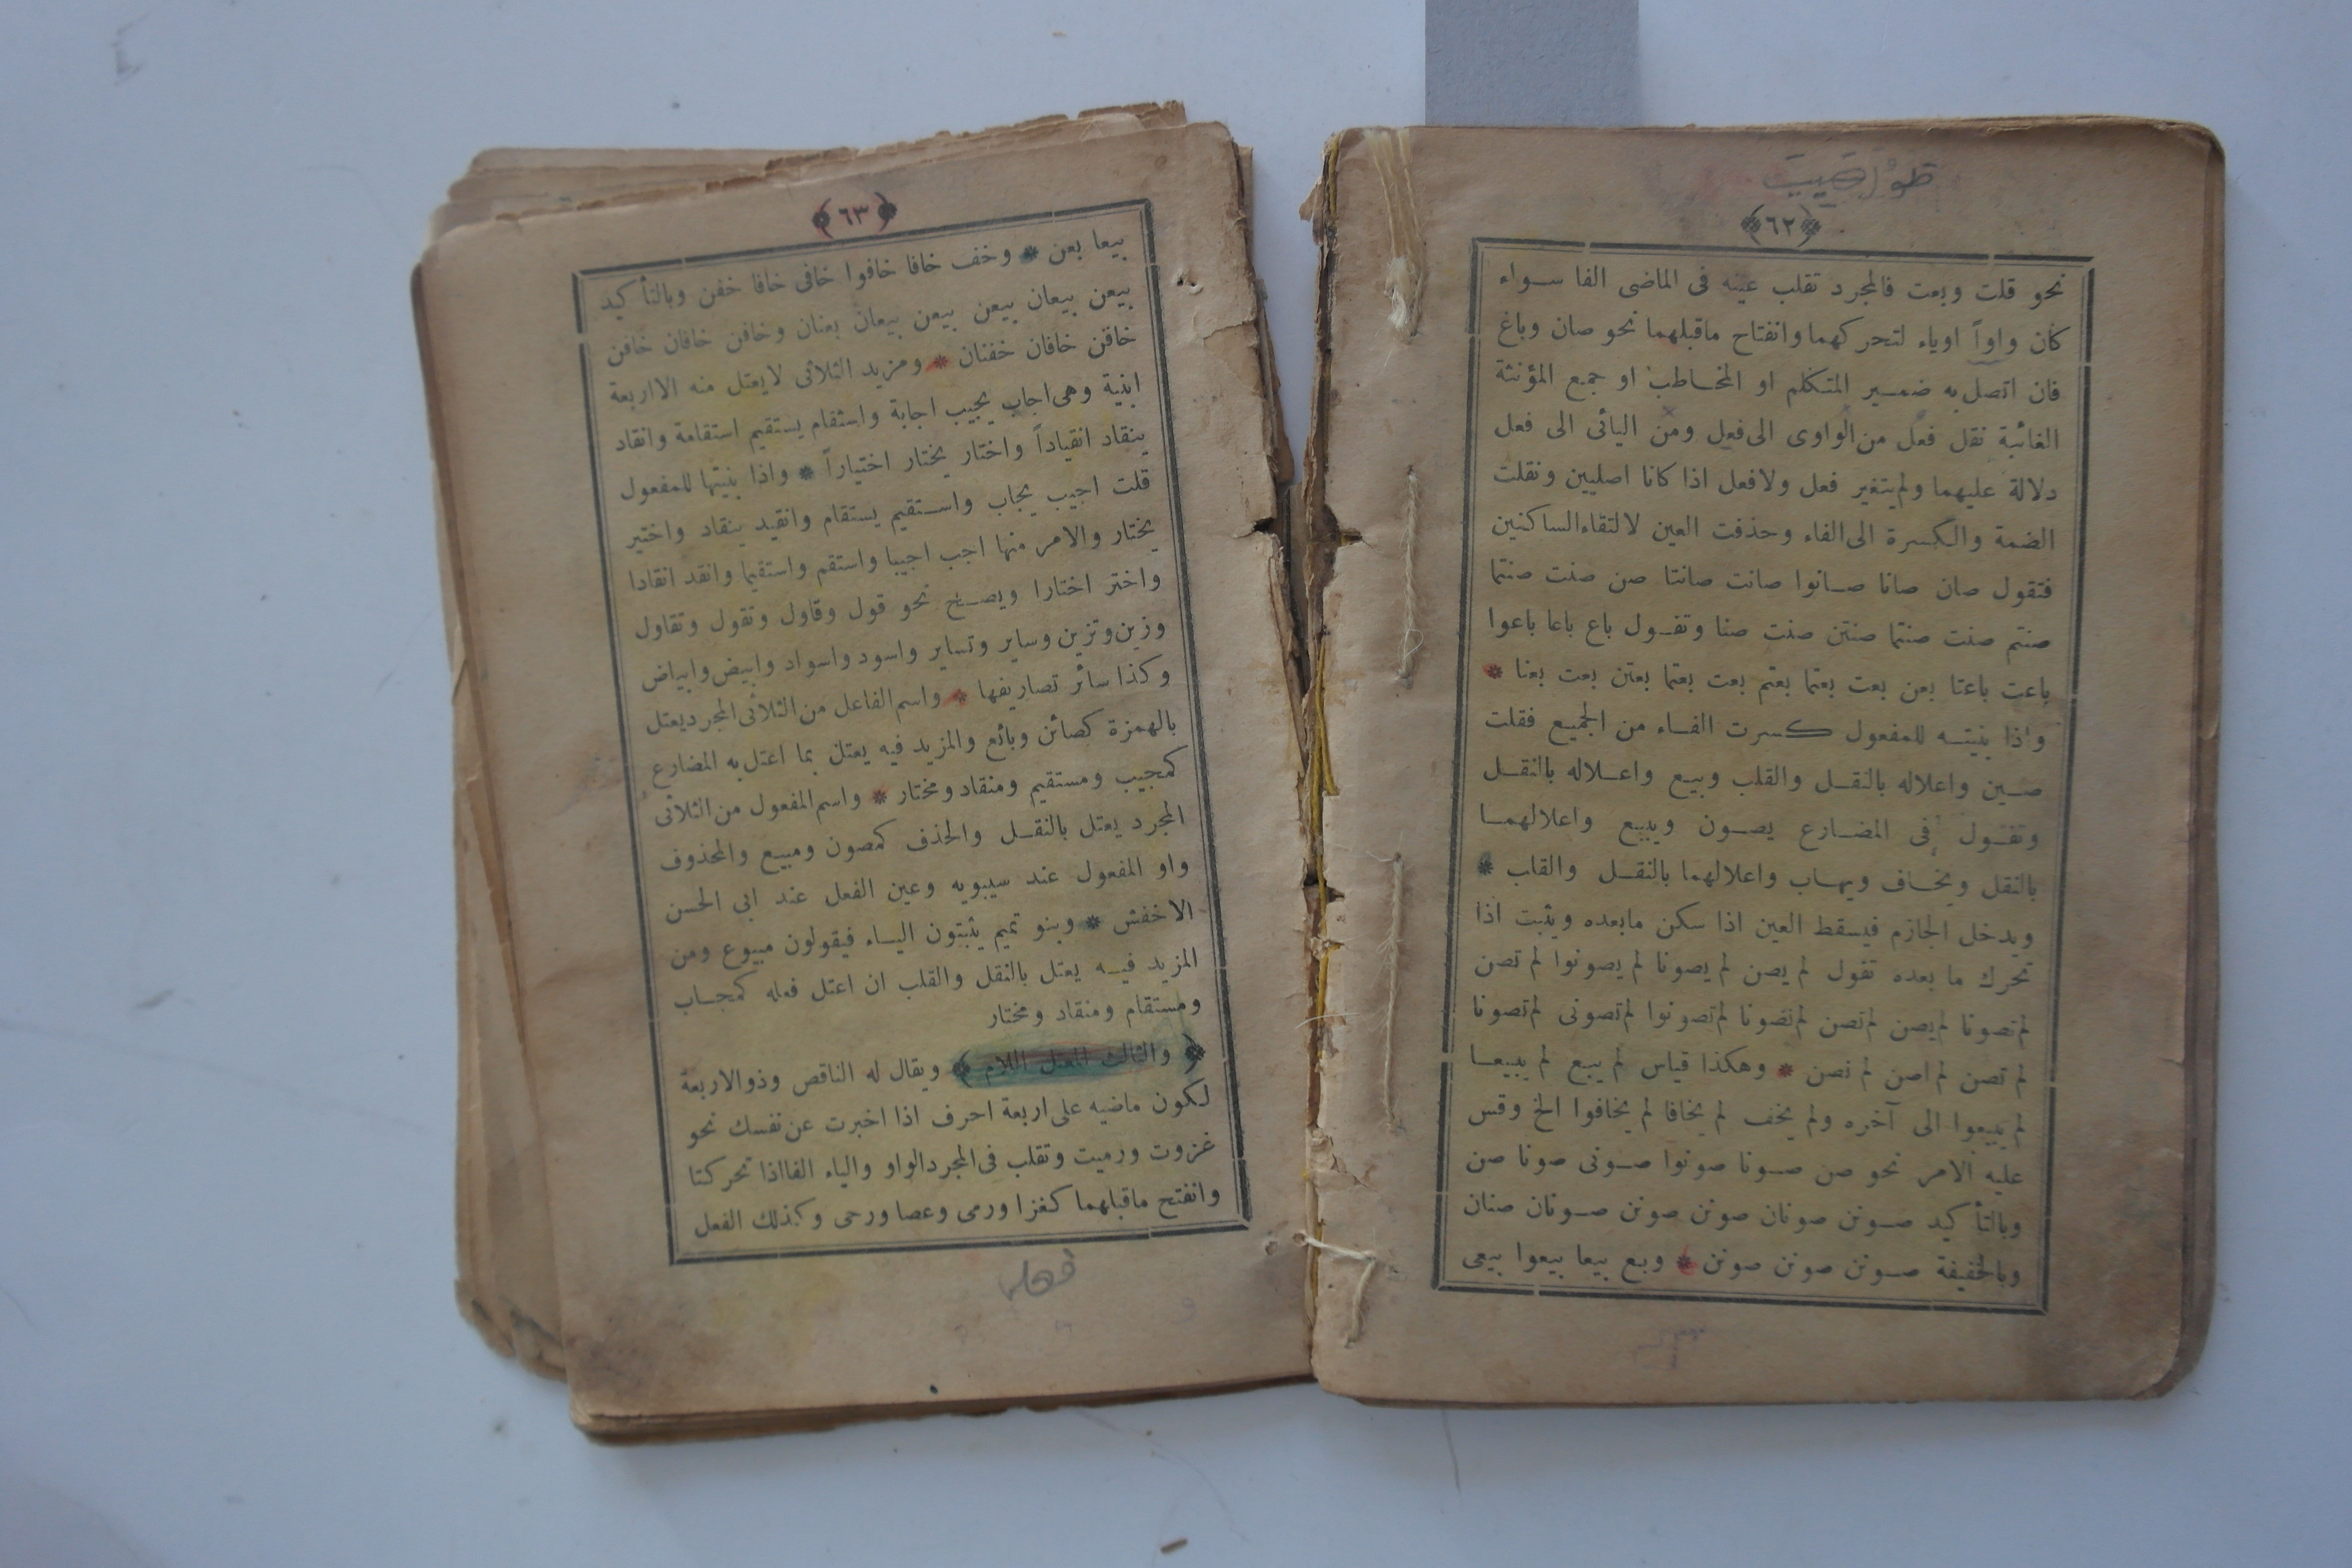 ﴿٦٢﴾
نحو قلت وبعت فالمجرد تقلب عينه فى الماضى الفا سواء
كان واواً اوياء لتحركهما وانفتاح ماقبلهما نحو صان وباغ
فان اتصل به ضمير المتكلم او المخاطب او جمع المؤنثة
الغائبة نقل فعل من الواوى الى فعل ومن اليائى الى فعل
دلالة عليهما ولم يتغير فعل ولا فعل اذا كانا اصليين ونقلت
الضمة والكسرة الى الفاء وحذفت العين لالتقاء الساكنين
فتقول صان صانا صانوا صانت صانتا صن صنت صنتما
صنتم صنت صنتما صنتن صنت صنا وتقول باع باعا باعوا
باعت باعتا بعن بعت بعتما بعتم بعت بعتما بعتن بعت بعنا *
واذا بنيته للمفعول كسرت الفاء من الجميع فقلت
صين واعلاله بالنقل والقلب وبيع واعلاله بالنقل
وتقول فى المضارع يصون ويبيع واعلالهما
بالنقل ويخاف ويهاب واعلالهما بالنقل والقاب *
ويدخل الجازم فيسقط العين اذا سكن مابعده ويثبت اذا
تحرك ما بعده تقول لم يصن لم يصونا لم يصونوا لم تصن
لم تصونا لم يصن لم تصن لم تصونا لم تصونوا لم تصونى لم تصونا
لم تصن لم اصن لم نصن * وهكذا قياس لم يبع لم يبيعا
لم يبيعوا الى آخره ولم يخف لم يخافا لم يخافوا الخ وقس
عليه الامر نحو صن صونا صونوا صونى صونا صن
وبالتأكيد صونن صونان صونن صونن صونان صنان
وبالخفيفة صونن صونن صونن * وبع بيعا بيعوا بيعى
﴿٦٣﴾
بيعا بعن * وخف خافا خافوا خافى خافا خفن وبالتأكيد
بيعن بيعان بيعن بيعن بيعان بعنان وخافن خافان خافن
خافن خافان خفنان * ومزيد الثلاثى لايعتل منه الااربعة
ابنية وهى اجاب يجيب اجابة واستقام يستقيم استقامة وانقاد
ينقاد انقياداً واختار يختار اختياراً * واذا بنيتها للمفعول
قلت اجيب يجاب واستقيم يستقام وانقيد ينقاد واختير
يختار والامر منها اجب اجيبا واستقم واستقيما وانقد انقادا
واختر اختارا ويصح نحو قول وقاول وتقول وتقاول
وزين وتزين وساير وتساير واسود واسواد وابيض وابياض
وكذا سائر تصاريفها * واسم الفاعل من الثلاثى المجرد يعتل
بالهمزة كصائن وبائع والمزيد فيه يعتل بما اعتل به المضارع
كمجيب ومستقيم ومنقاد ومختار * واسم المفعول من الثلاثى
المجرد يعتل بالنقل والحذف كمصون ومبيع والمحذوف
واو المفعول عند سيبويه وعين الفعل عند ابى الحسن
الاخفش * وبنو تميم يثبتون الياء فيقولون مبيوع ومن
المزيد فيه يعتل بالنقل والقلب ان اعتل فعله كمجاب
ومستقام ومنقاد ومختار
﴿ والثالث المعتل اللام ﴾ ويقال له الناقص وذوالاربعة
لكون ماضيه على اربعة احرف اذا اخبرت عن نفسك نحو
غزوت ورميت وتقلب فى المجرد الواو والياء الفا اذا تحركتا
وانفتح ماقبلهما كغزا ورمى وعصا ورحى وكذلك الفعل